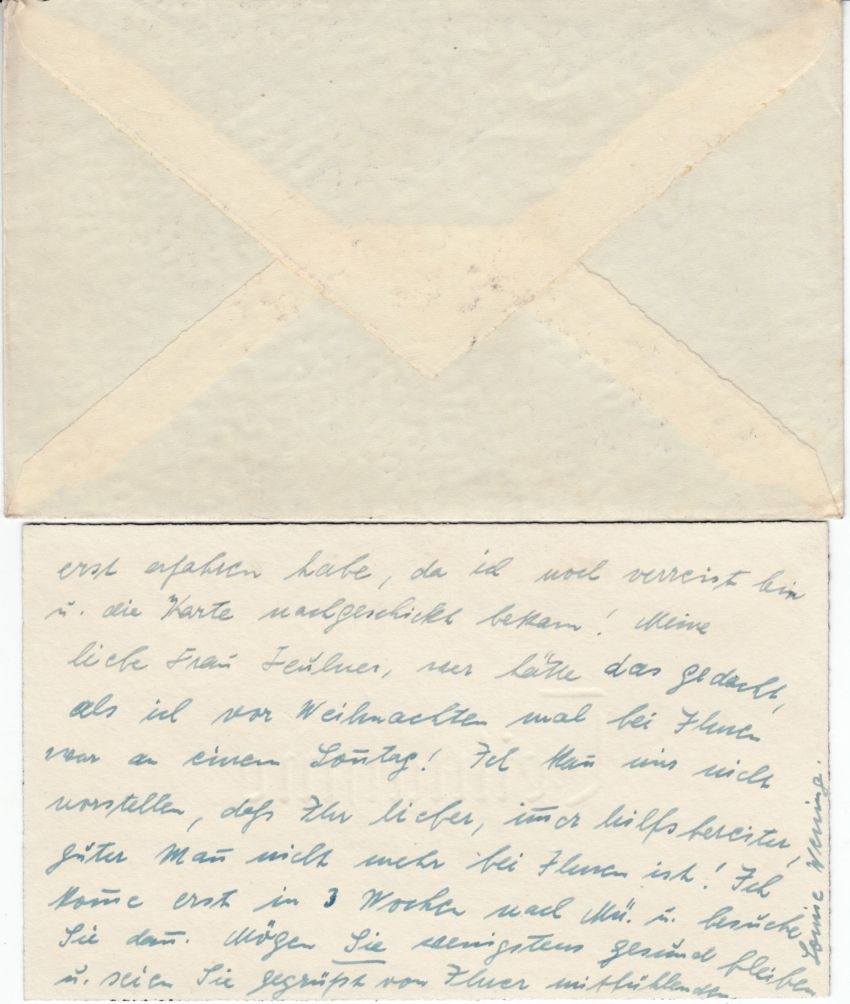 erst erfahren habe, da ich noch verreist bin
u. die Karte nachgeschickt bekam! Meine
liebe Frau Zeulner, wer hätte das gedacht,
als ich vor Weihnachten mal bei Ihnen
war an einem Son̄tag! Ich kan̄ mir nicht
vorstellen, daſs Ihr lieber, im̄er hilfsbereiter,
guter Man̄ nicht mehr bei Ihnen ist! Ich
kom̄e erst in 3 Wochen nach Mü. u. besuche
Sie dan̄. Mögen Sie wenigstens gesund bleiben
u. seien Sie gegrüßt von Ihrer mitfühlenden